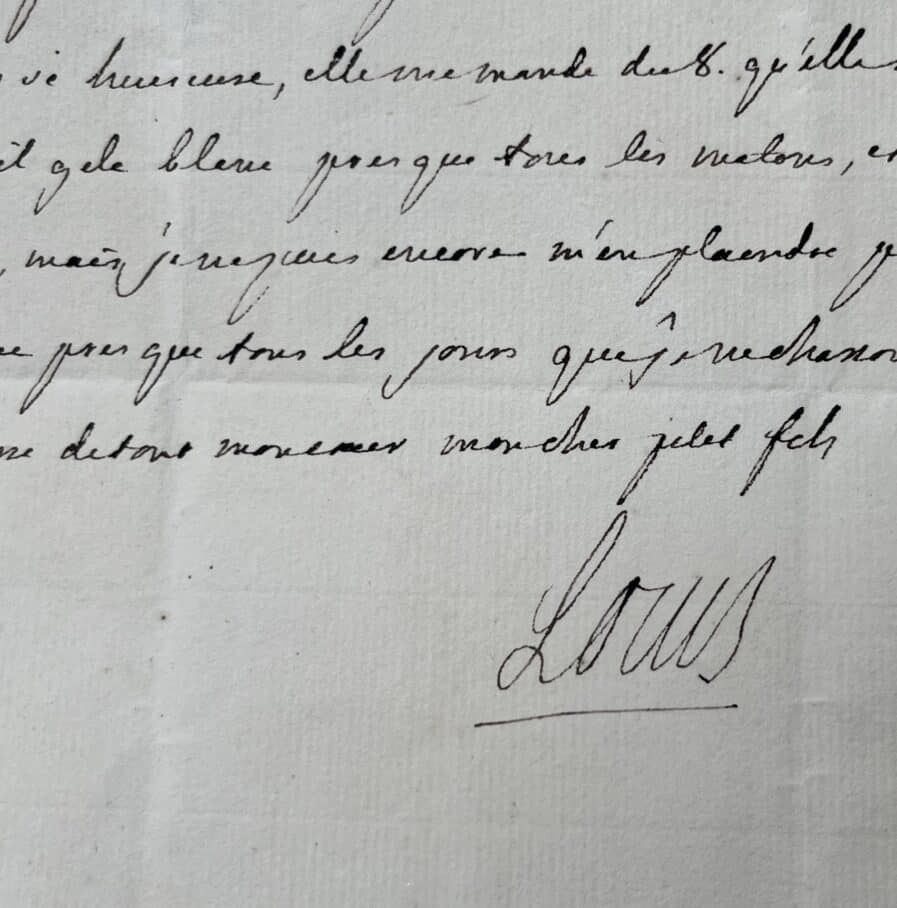 vie heureuse, elle me mande du 8. qu'elle
il gele blanc presque tous les matins, et
, mais je ne puis encore m'en plaindre
presque tous les jours que je ne chasse
de tout mon cœur mon cher petit fils
Louis